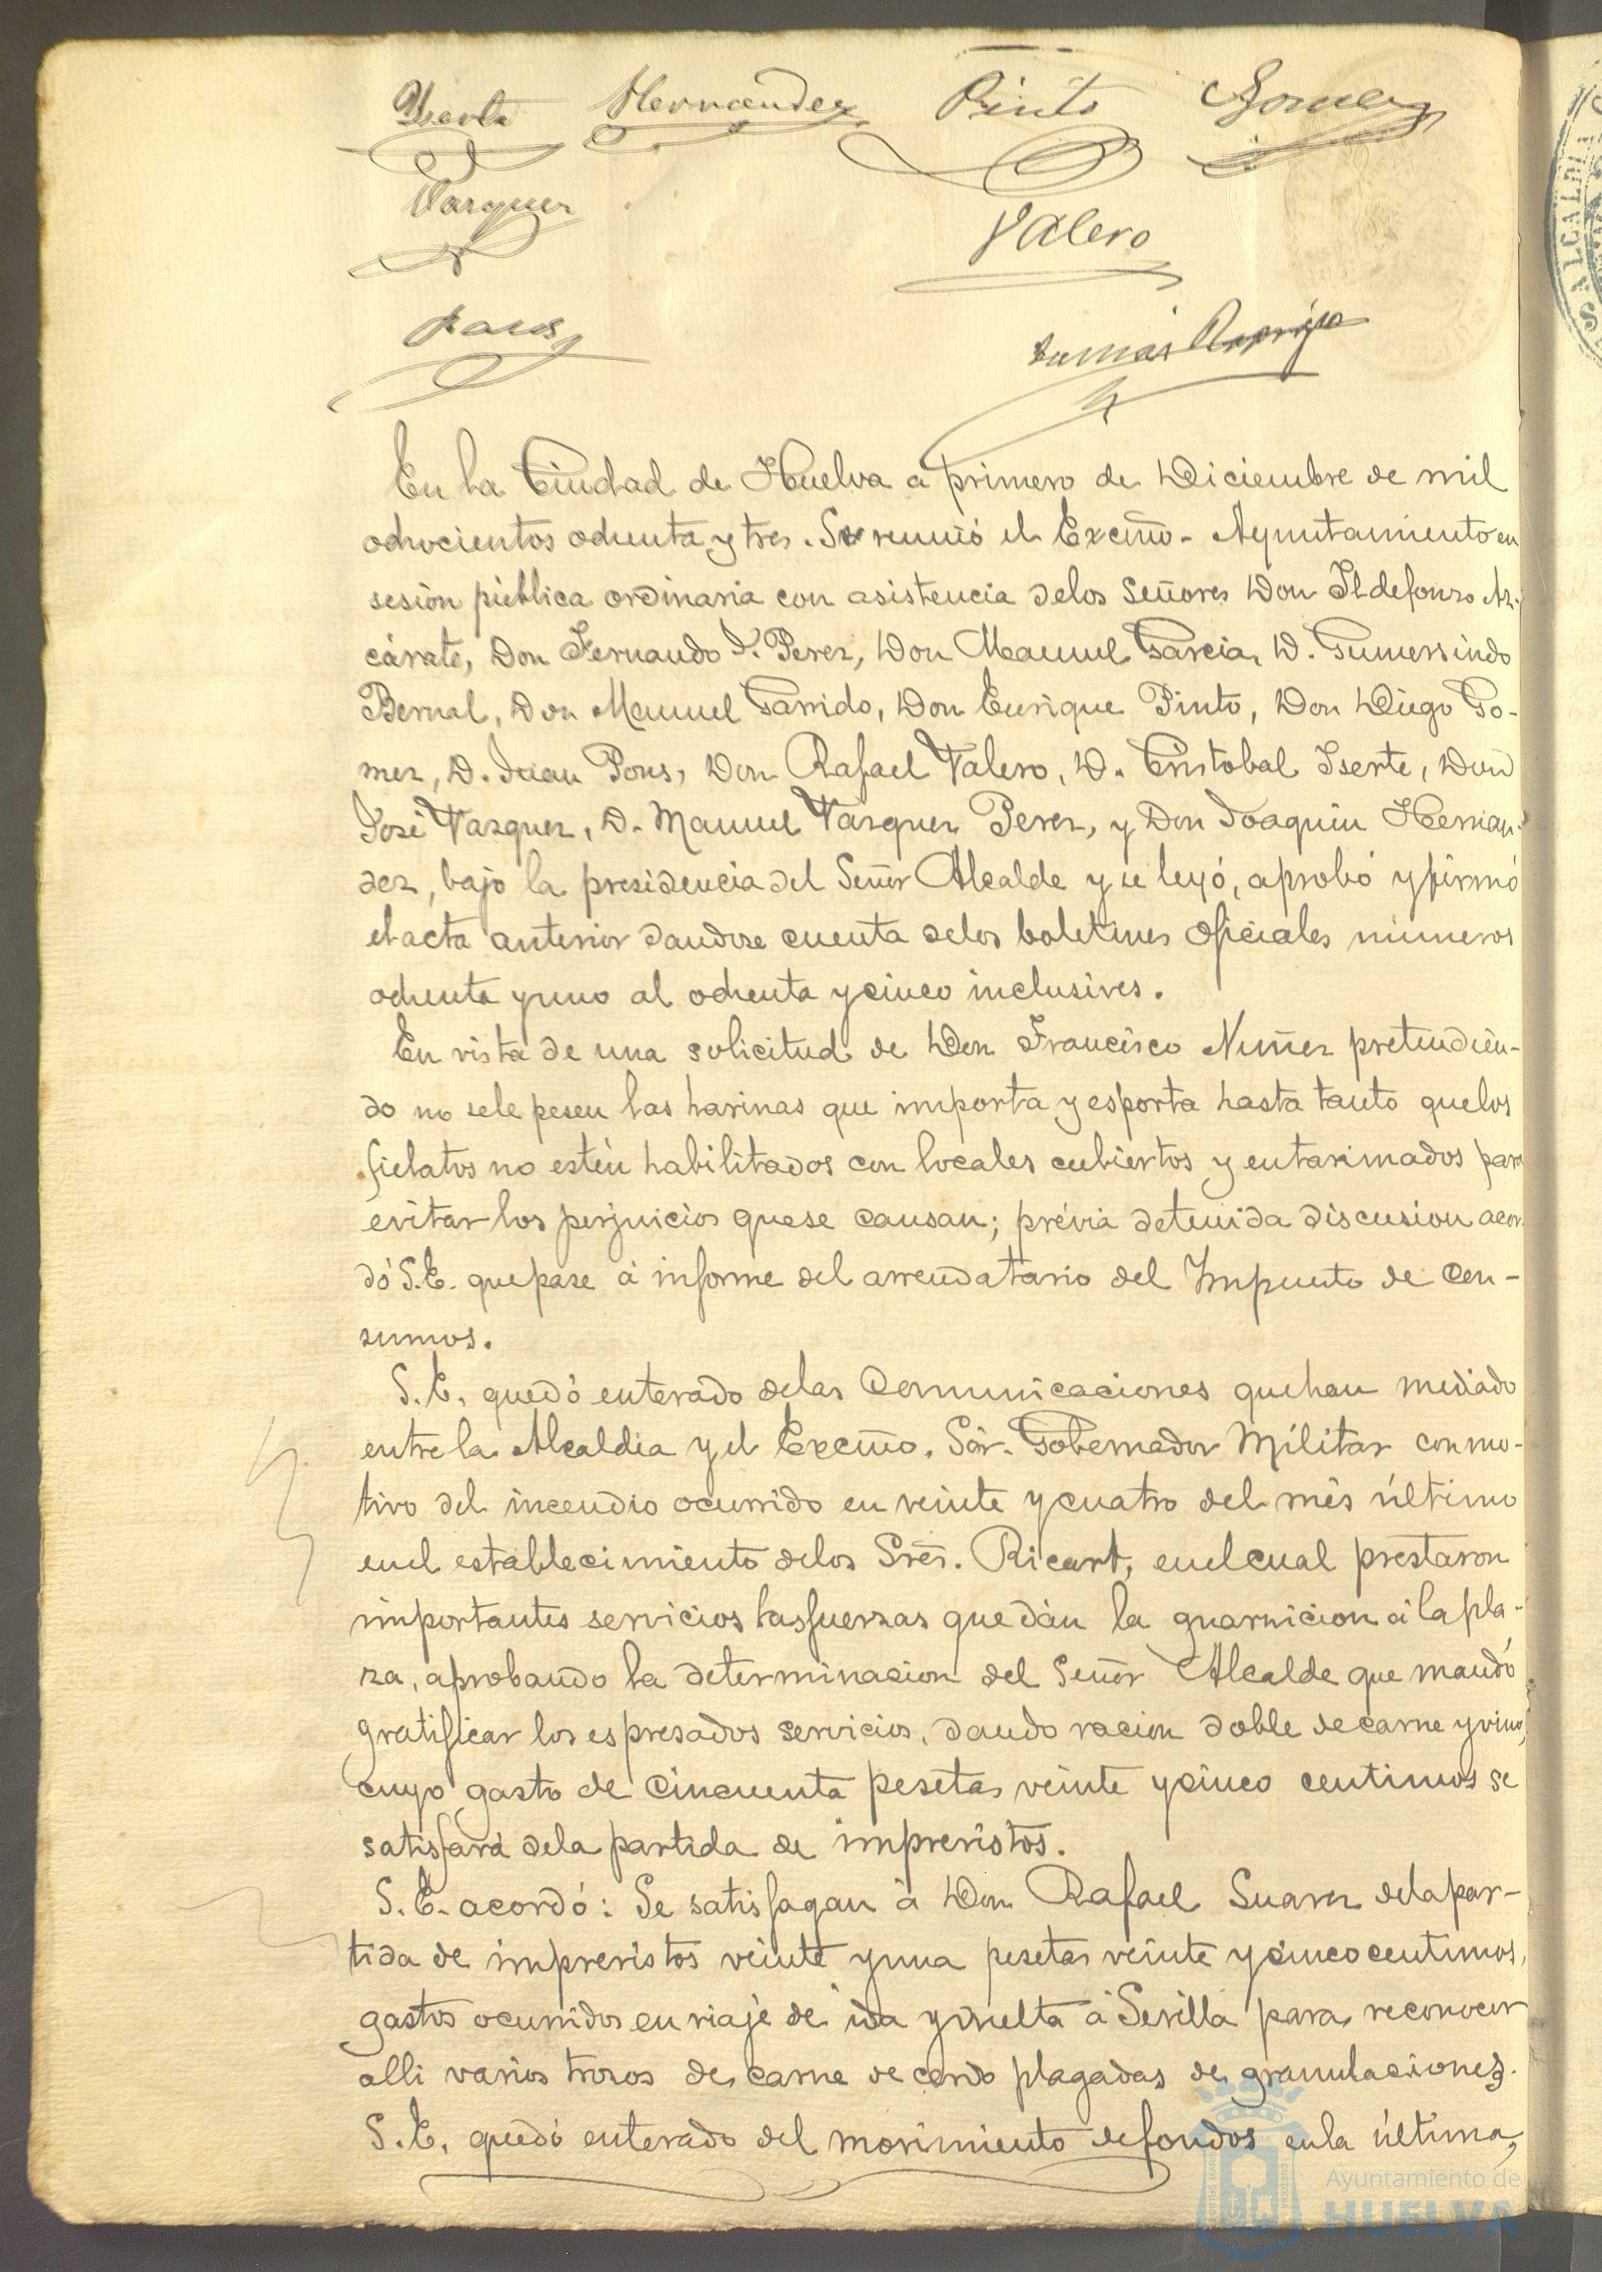 Yserte Hernandez Pinto Gomez
Vazquez
Valero
Pons
Tomás
En la Ciudad de Huelva a primero de Diciembre de mil
ochocientos ochenta y tres. Se reunió el Excmo. Ayuntamiento en
sesión pública ordinaria con asistencia delos Señores Don Ildefonso Az-
cárate, Don Fernando F. Perez, Don Manuel Garcia, D. Gumersindo
Bernal, Don Manuel Garrido, Don Enrique Pinto, Don Diego Go-
mez, D. Juan Pons, Don Rafael Valero, D. Cristobal Iserte, Don
José Vazquez, D. Manuel Vazquez Perez, y Don Joaquin Hernan-
dez, bajo la presidencia del Señor Alcalde y se leyó, aprobó y firmó
el acta anterior dandose cuenta delos boletines oficiales números
ochenta y uno al ochenta y cinco inclusives.
En vista de una solicitud de Don Francisco Nuñez pretendien-
do no sele pesen las harinas que importa y esporta hasta tanto quelos
fielatos no estén habilitados con locales cubiertos y entarimados para
evitar los perjuicios quese causan; prévia detenida discusion acor-
dó S.E. que pase á informe del arrendatario del Impuesto de Con-
sumos.
S.E. quedó enterado delas Comunicaciones que han mediado
entre la Alcaldia y el Excmo. Sór. Gobernador Militar con mo-
tivo del incendio ocurrido en veinte y cuatro del més último
en el establecimiento delos Sres. Ricart, en el cual prestaron
importantes servicios las fuerzas que dán la guarnicion á la pla-
za, aprobando la determinacion del Señor Alcalde que mandó
gratificar los espresados servicios, dando racion doble de carne y vino,
cuyo gasto de cincuenta pesetas veinte y cinco centimos se
satisfará dela partida de imprevistos.
S.E. acordó: Se satisfagan á Don Rafael Suarez dela par-
tida de imprevistos veinte y una pesetas veinte y cinco centimos,
gastos ocurridos en viaje de ida y vuelta á Sevilla para reconocer
alli varios trozos de carne de cerdo plagadas de granulaciones.
S.E. quedó enterado del movimiento de fondos en la última,
ALCALDIA
Ayuntamiento de
HUELVA